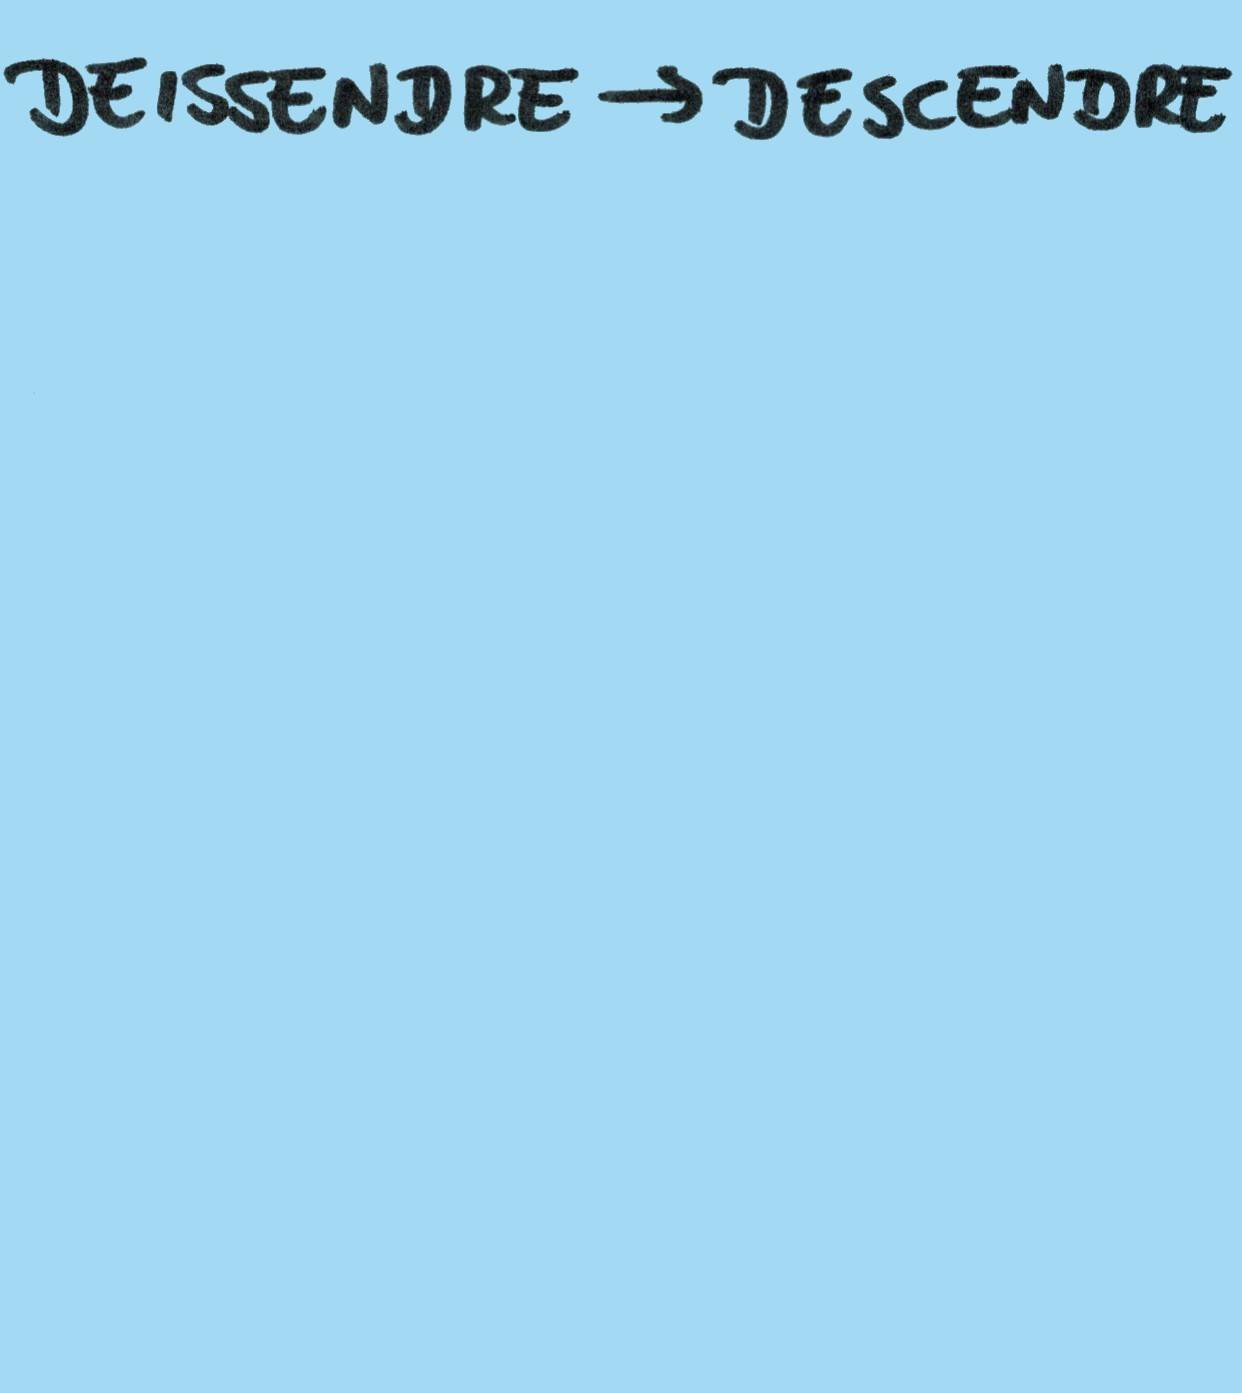 DEISSENDRE → DESCENDRE